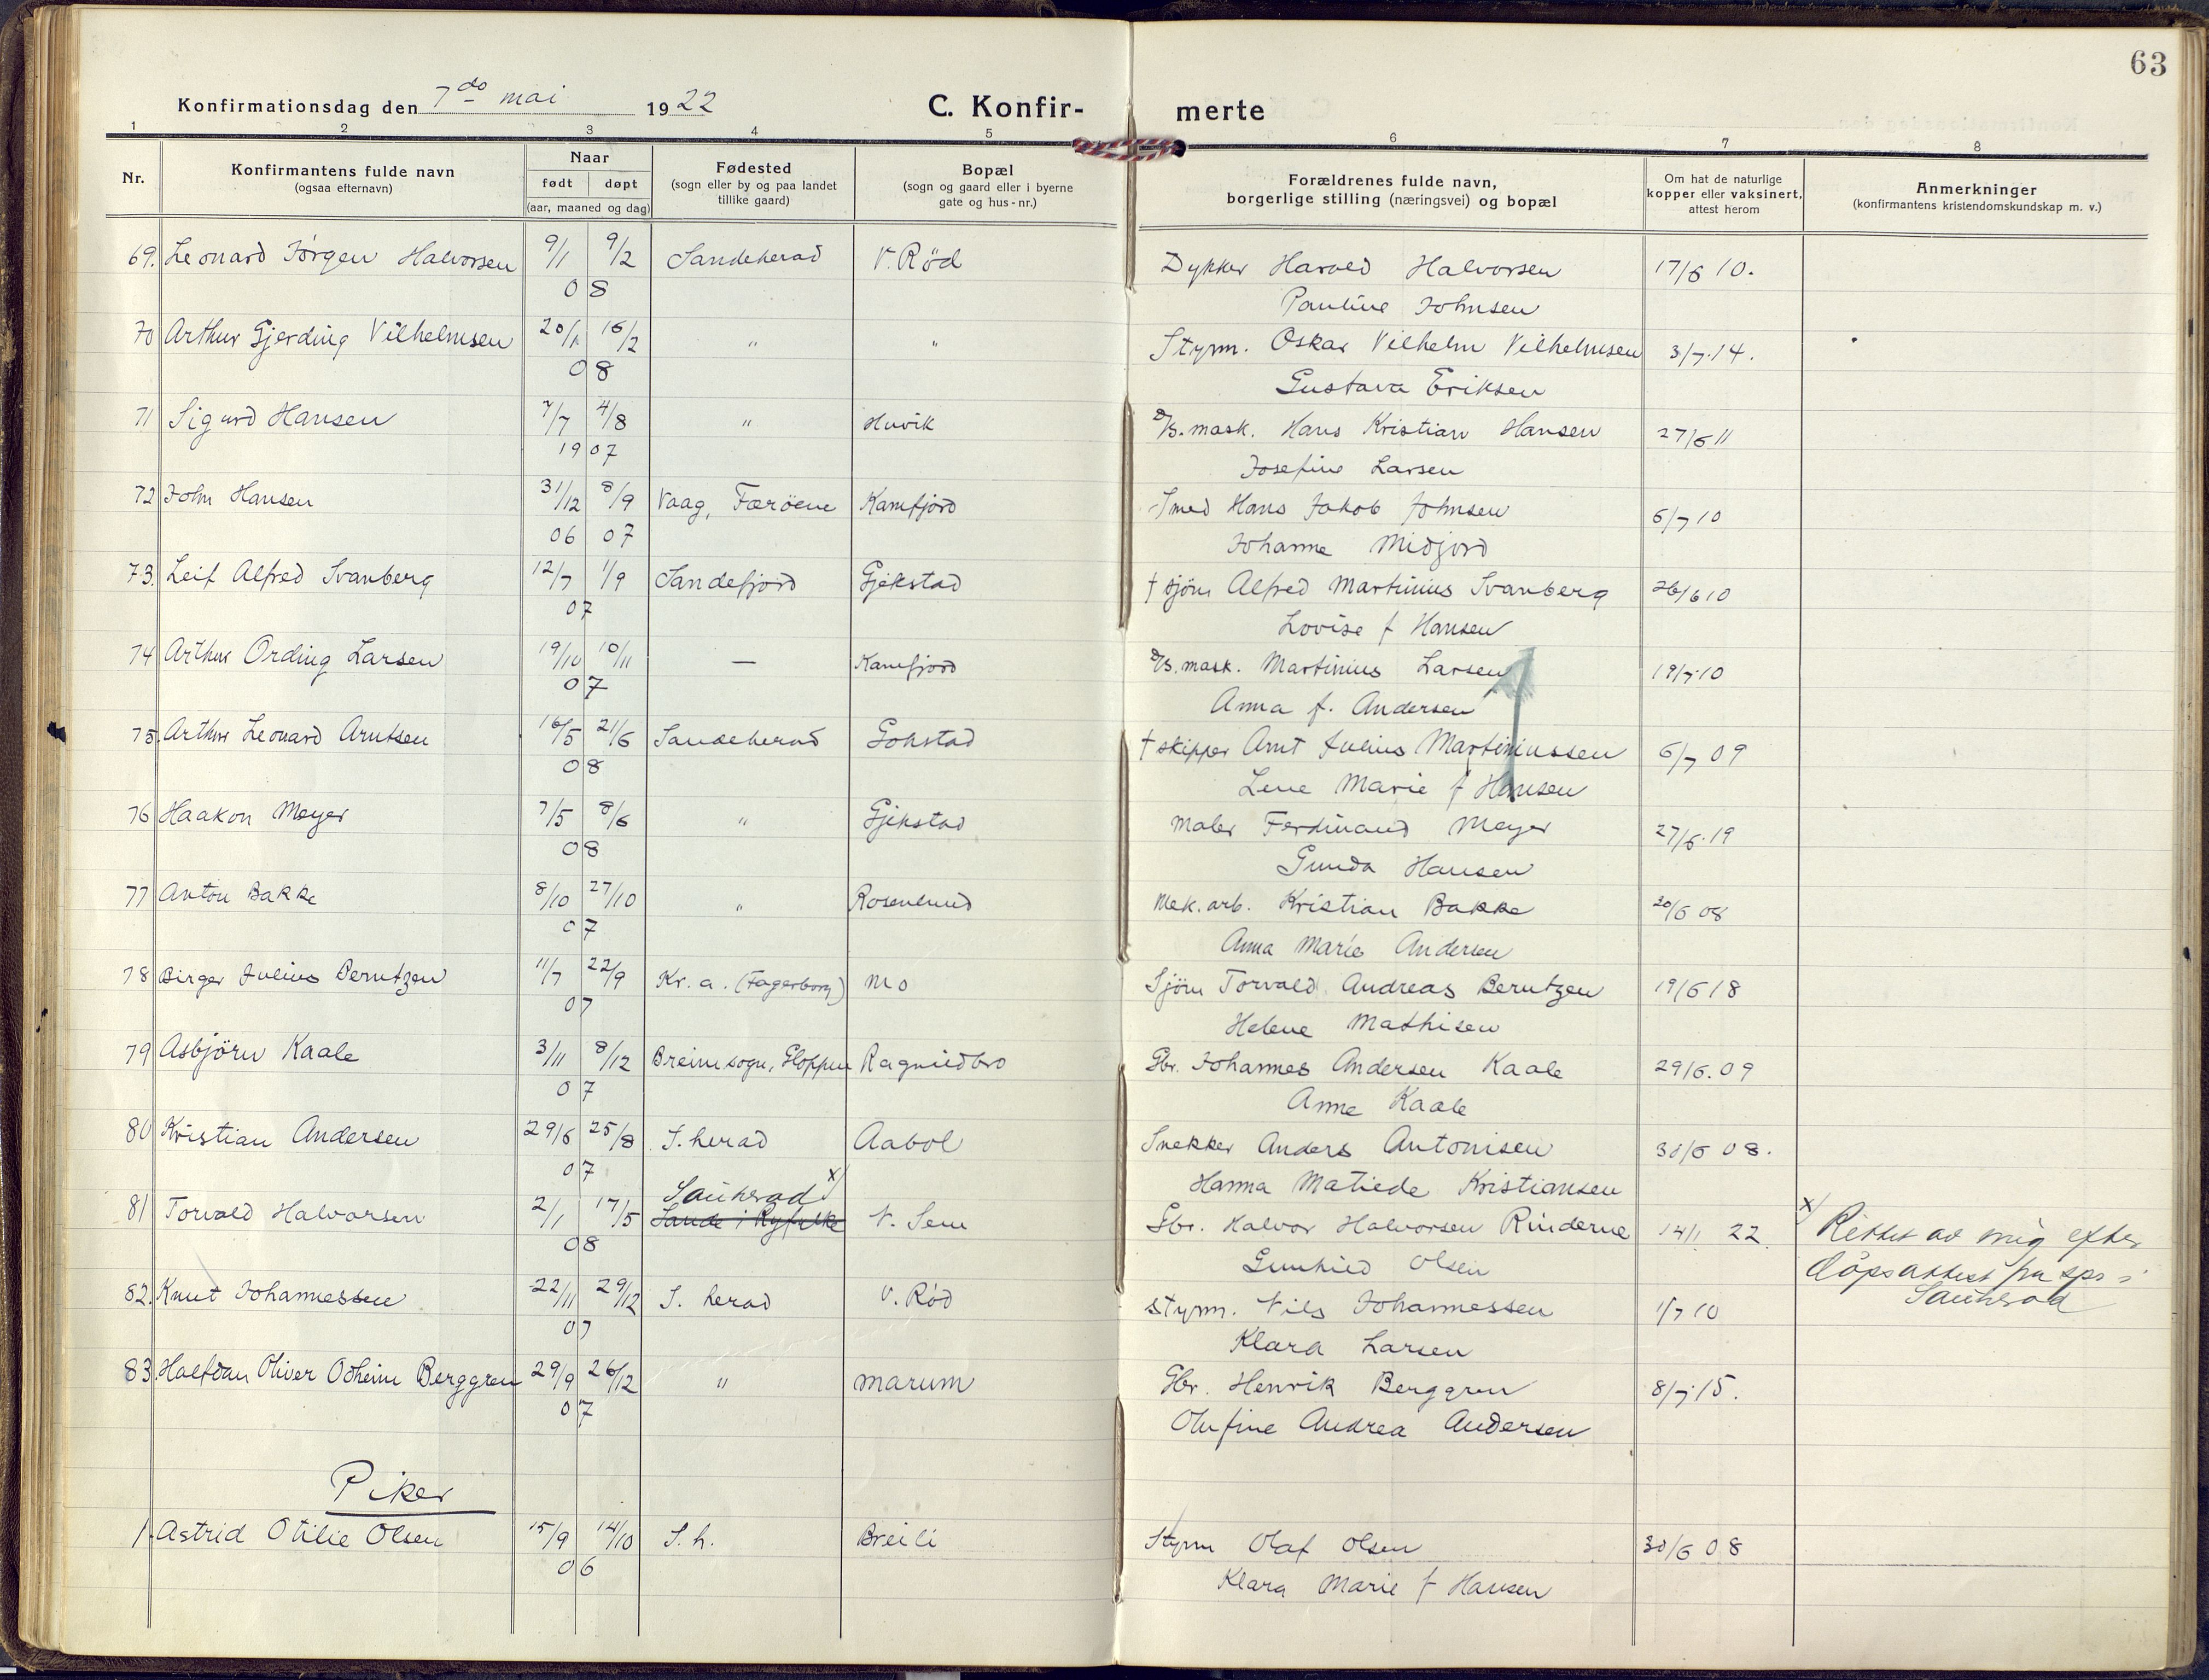 63
Konfirmationsdag den 7do mai 1922 C. Konfir- merte
1 2 3 4 5 6 7 8
Nr. Konfirmantens fulde navn (ogsaa efternavn) Naar født døpt (aar, maaned og dag) Fødested (sogn eller by og paa landet tillike gaard) Bopæl (sogn og gaard eller i byerne gate og hus-nr.) Forældrenes fulde navn, borgerlige stilling (næringsvei) og bopæl Om hat de naturlige kopper eller vaksinert, attest herom Anmerkninger (konfirmantens kristendomskundskap m. v.)
69. Leonard Jørgen Halvorsen 9/1 9/2 Sandeherad V. Rød Dykker Harald Halvorsen 17/6 10.
08 Pauline Johnsen
70 Arthur Gjerding Vilhelmsen 20/1 16/2 " " Styrm. Oskar Vilhelm Vilhelmsen 3/7.14.
08 Gustava Eriksen
71 Sigurd Hansen 7/7 4/8 " Huvik D/S. mask. Hans Kristian Hansen 27/6 11
1907 Josefine Larsen
72 John Hansen 31/12 8/9 Vaag, Færöene Kamfjord Smed Hans Jakob Johnsen 6/7 10
06 07 Johanne Midjord
73. Leif Alfred Svanberg 12/7 1/9 Sandefjord Gjekstad † sjöm Alfred Martinius Svanberg 26/6 10
07 Lovise f Hansen
74 Arthur Ording Larsen 19/10 10/11 — Kamfjord D/S. mask. Martinius Larsen 19/7.10
07 Anna f. Andersen
75. Arthur Leonard Arntsen 16/5 21/6 Sandeherad Gokstad † skipper Arnt Julius Martiniussen 6/7 09
08 Lene Marie f Hansen
76 Haakon Meyer 7/5 8/6 " Gjekstad Maler Ferdinand Meyer 27/6.19
08 Gunda Hansen
77 Anton Bakke 8/10 27/10 " Rosenlund Mek. arb. Kristian Bakke 30/6 08
07 Anna Marie Andersen
78 Birger Julius Berntzen 11/7 22/9 Kr. a. (Fagerborg) Mo Sjöm Torvald Andreas Berntzen 19/6 18
07 Helene Mathisen
79 Asbjörn Kaale 3/11 8/12 Breim sogn, Gloppen Ragnildbo Gbr. Johannes Andersen Kaale 29/6. 09
07 Anne Kaale
80 Kristian Andersen 29/6 25/8 S. herad Aabol Snekker Anders Antonisen 30/6 08.
07 Hanna Matilde Kristiansen
Sauherad x)
81 Torvald Halvorsen 2/1 17/5 Sande i Ryfylke V. Sem Gbr. Halvor Halvorsen Rinderne 14/1 22. x) Rettet av mig efter
08 Gunhild Olsen döpsattest fra spr i
82. Knut Johannessen 22/11 29/12 S. herad V. Rød Styrm. Nils Johannessen 1/7 10 Sauherad
07 Klara Larsen
83. Halfdan Oliver Odheim Berggren 29/9 26/12 " Marum Gbr. Henrik Berggren 8/7.15.
07 Olufine Andrea Andersen
Piker
1. Astrid Otilie Olsen 15/9 14/10 S. h. Breili Styrm Olaf Olsen 30/6 08
06 Klara Marie f Hansen